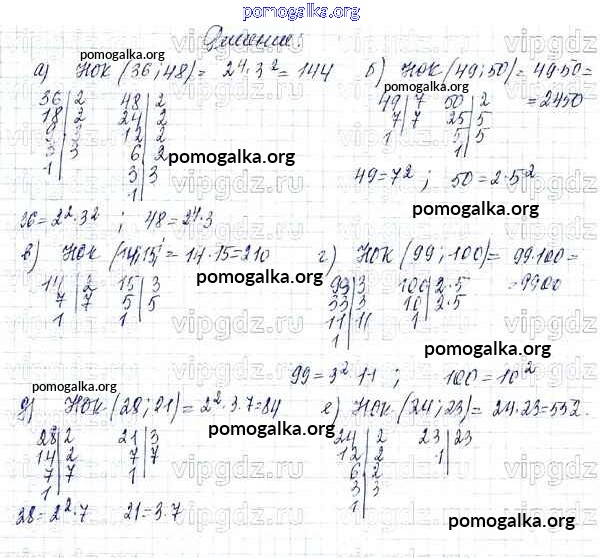 pomogalka.org
Решение:
pomogalka.org
а) НОК (36; 48) = 2⁴·3² = 144
б) НОК (49; 50) = 49·50 =
= 2450
36|2 48|2
18|2 24|2
9|3 12|2
3|3 6|2
1| 3|3
1|
49|7 50|2
7|7 25|5
1| 5|5
1|
pomogalka.org
49 = 7² ; 50 = 2·5²
pomogalka.org
36 = 2²·3² ; 48 = 2⁴·3
в) НОК (14; 15) = 14·15 = 210
г) НОК (99; 100) = 99·100 =
= 9900
pomogalka.org
14|2 15|3
7|7 5|5
1| 1|
99|3 100|2·5
33|3 10|2·5
11|11 1|
1|
pomogalka.org
99 = 3²·11 ; 100 = 10²
pomogalka.org
д) НОК (28; 21) = 2²·3·7 = 84
е) НОК (24; 23) = 24·23 = 552.
pomogalka.org
28|2 21|3
14|2 7|7
7|7 1|
1|
24|2 23|23
12|2 1|
6|2
3|3
1|
pomogalka.org
28 = 2²·7 21 = 3·7
pomogalka.org
vipgdz.ru